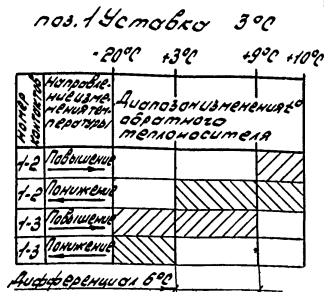 поз. 1 Уставка 3°С
-20°С +3°С +9°С +10°С
Номер контактов
Направле-
ние изме-
нения тем-
пературы
Диапазон изменения t°
обратного
теплоносителя
1-2 Повышение
1-2 Понижение
1-3 Повышение
1-3 Понижение
Дифференциал 6°С